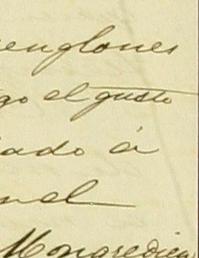 englones
go el gusto
ado á
nel
Mongredien